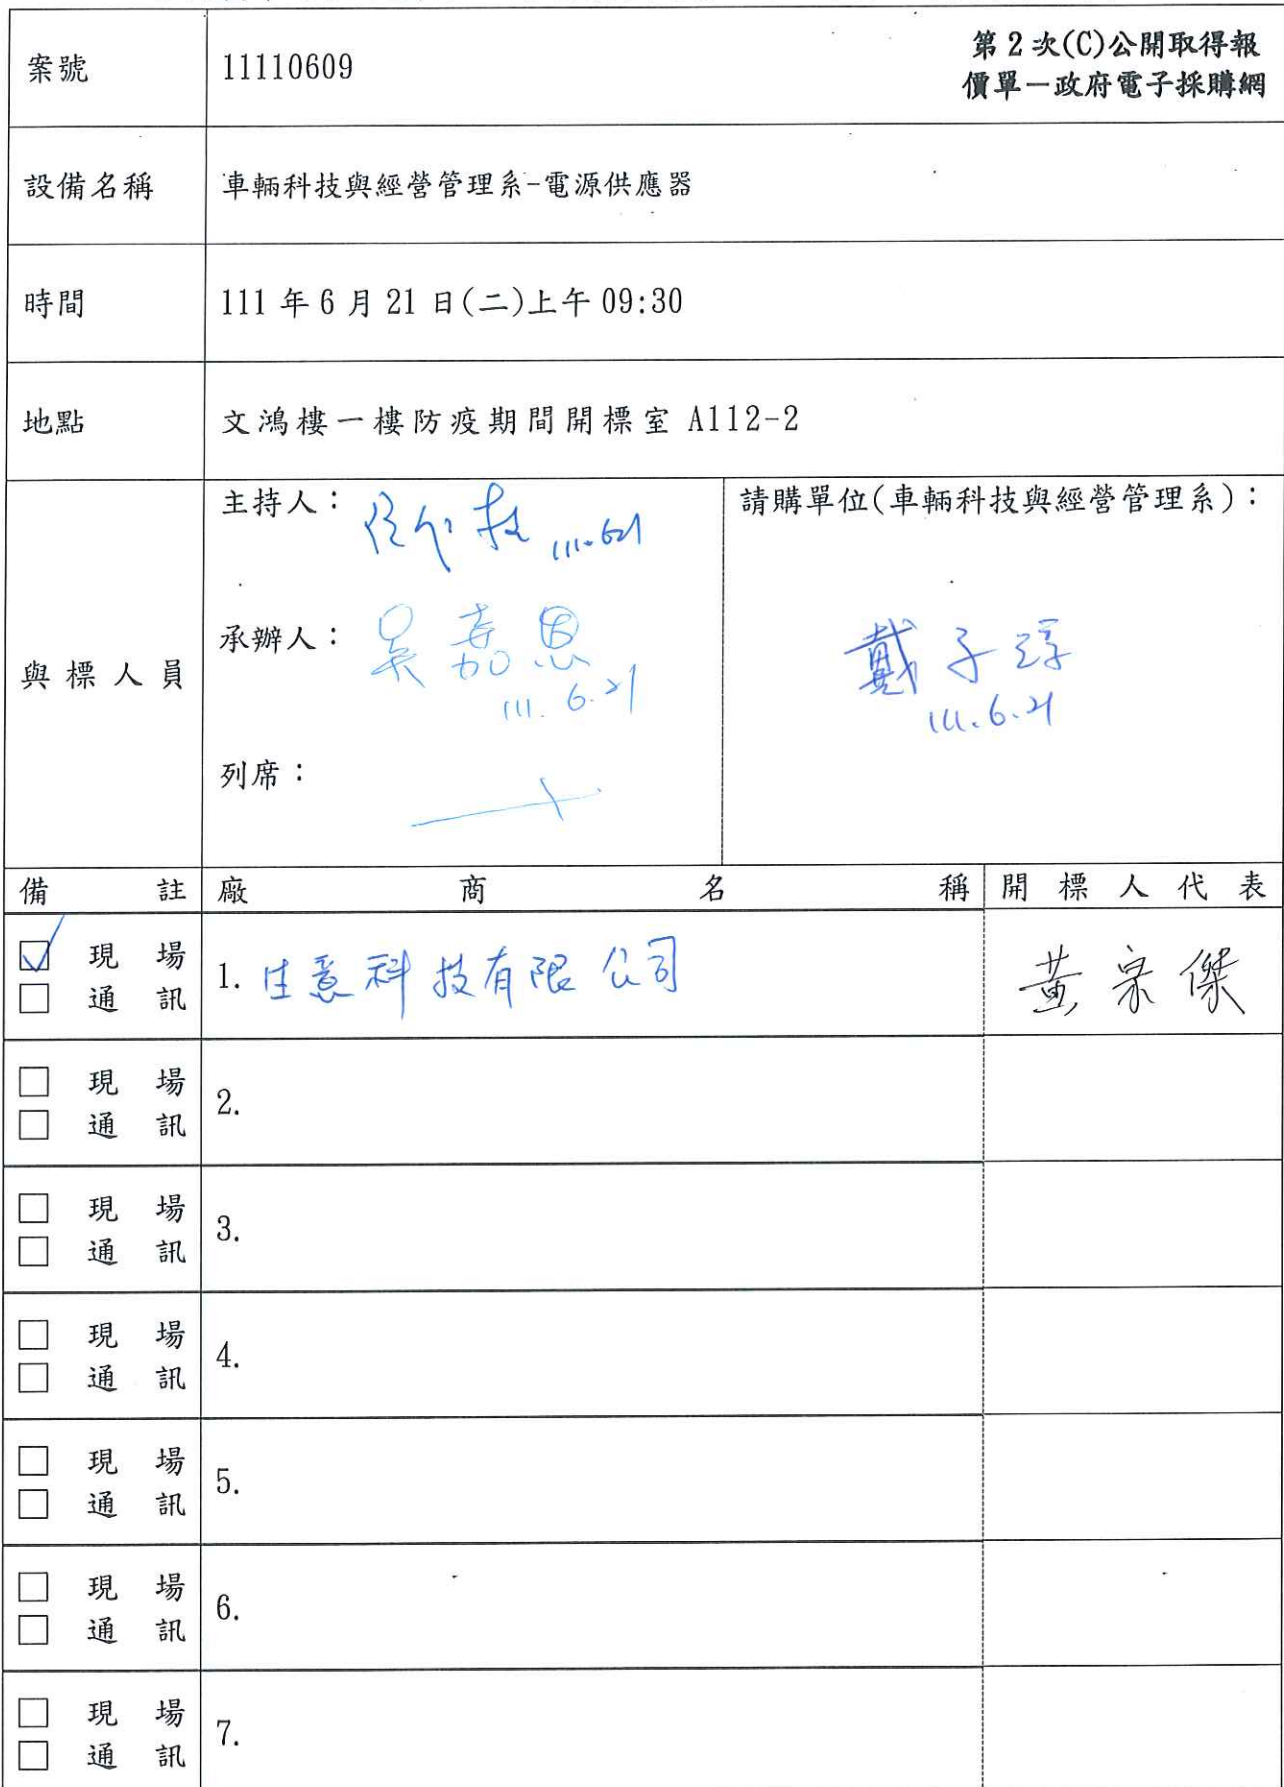 案號
11110609
第2次(C)公開取得報
價單－政府電子採購網
設備名稱
車輛科技與經營管理系-電源供應器
時間
111 年 6 月 21 日(二)上午 09:30
地點
文鴻樓一樓防疫期間開標室 A112-2
與標人員
主持人：
111.6.21
承辦人：
吳嘉恩
111.6.21
列席：
請購單位(車輛科技與經營管理系)：
戴子
111.6.21
備註 廠商名稱 開標人代表
現場
通訊
1. 佳意科技有限公司
黃宗傑
現場
通訊
2.
現場
通訊
3.
現場
通訊
4.
現場
通訊
5.
現場
通訊
6.
現場
通訊
7.